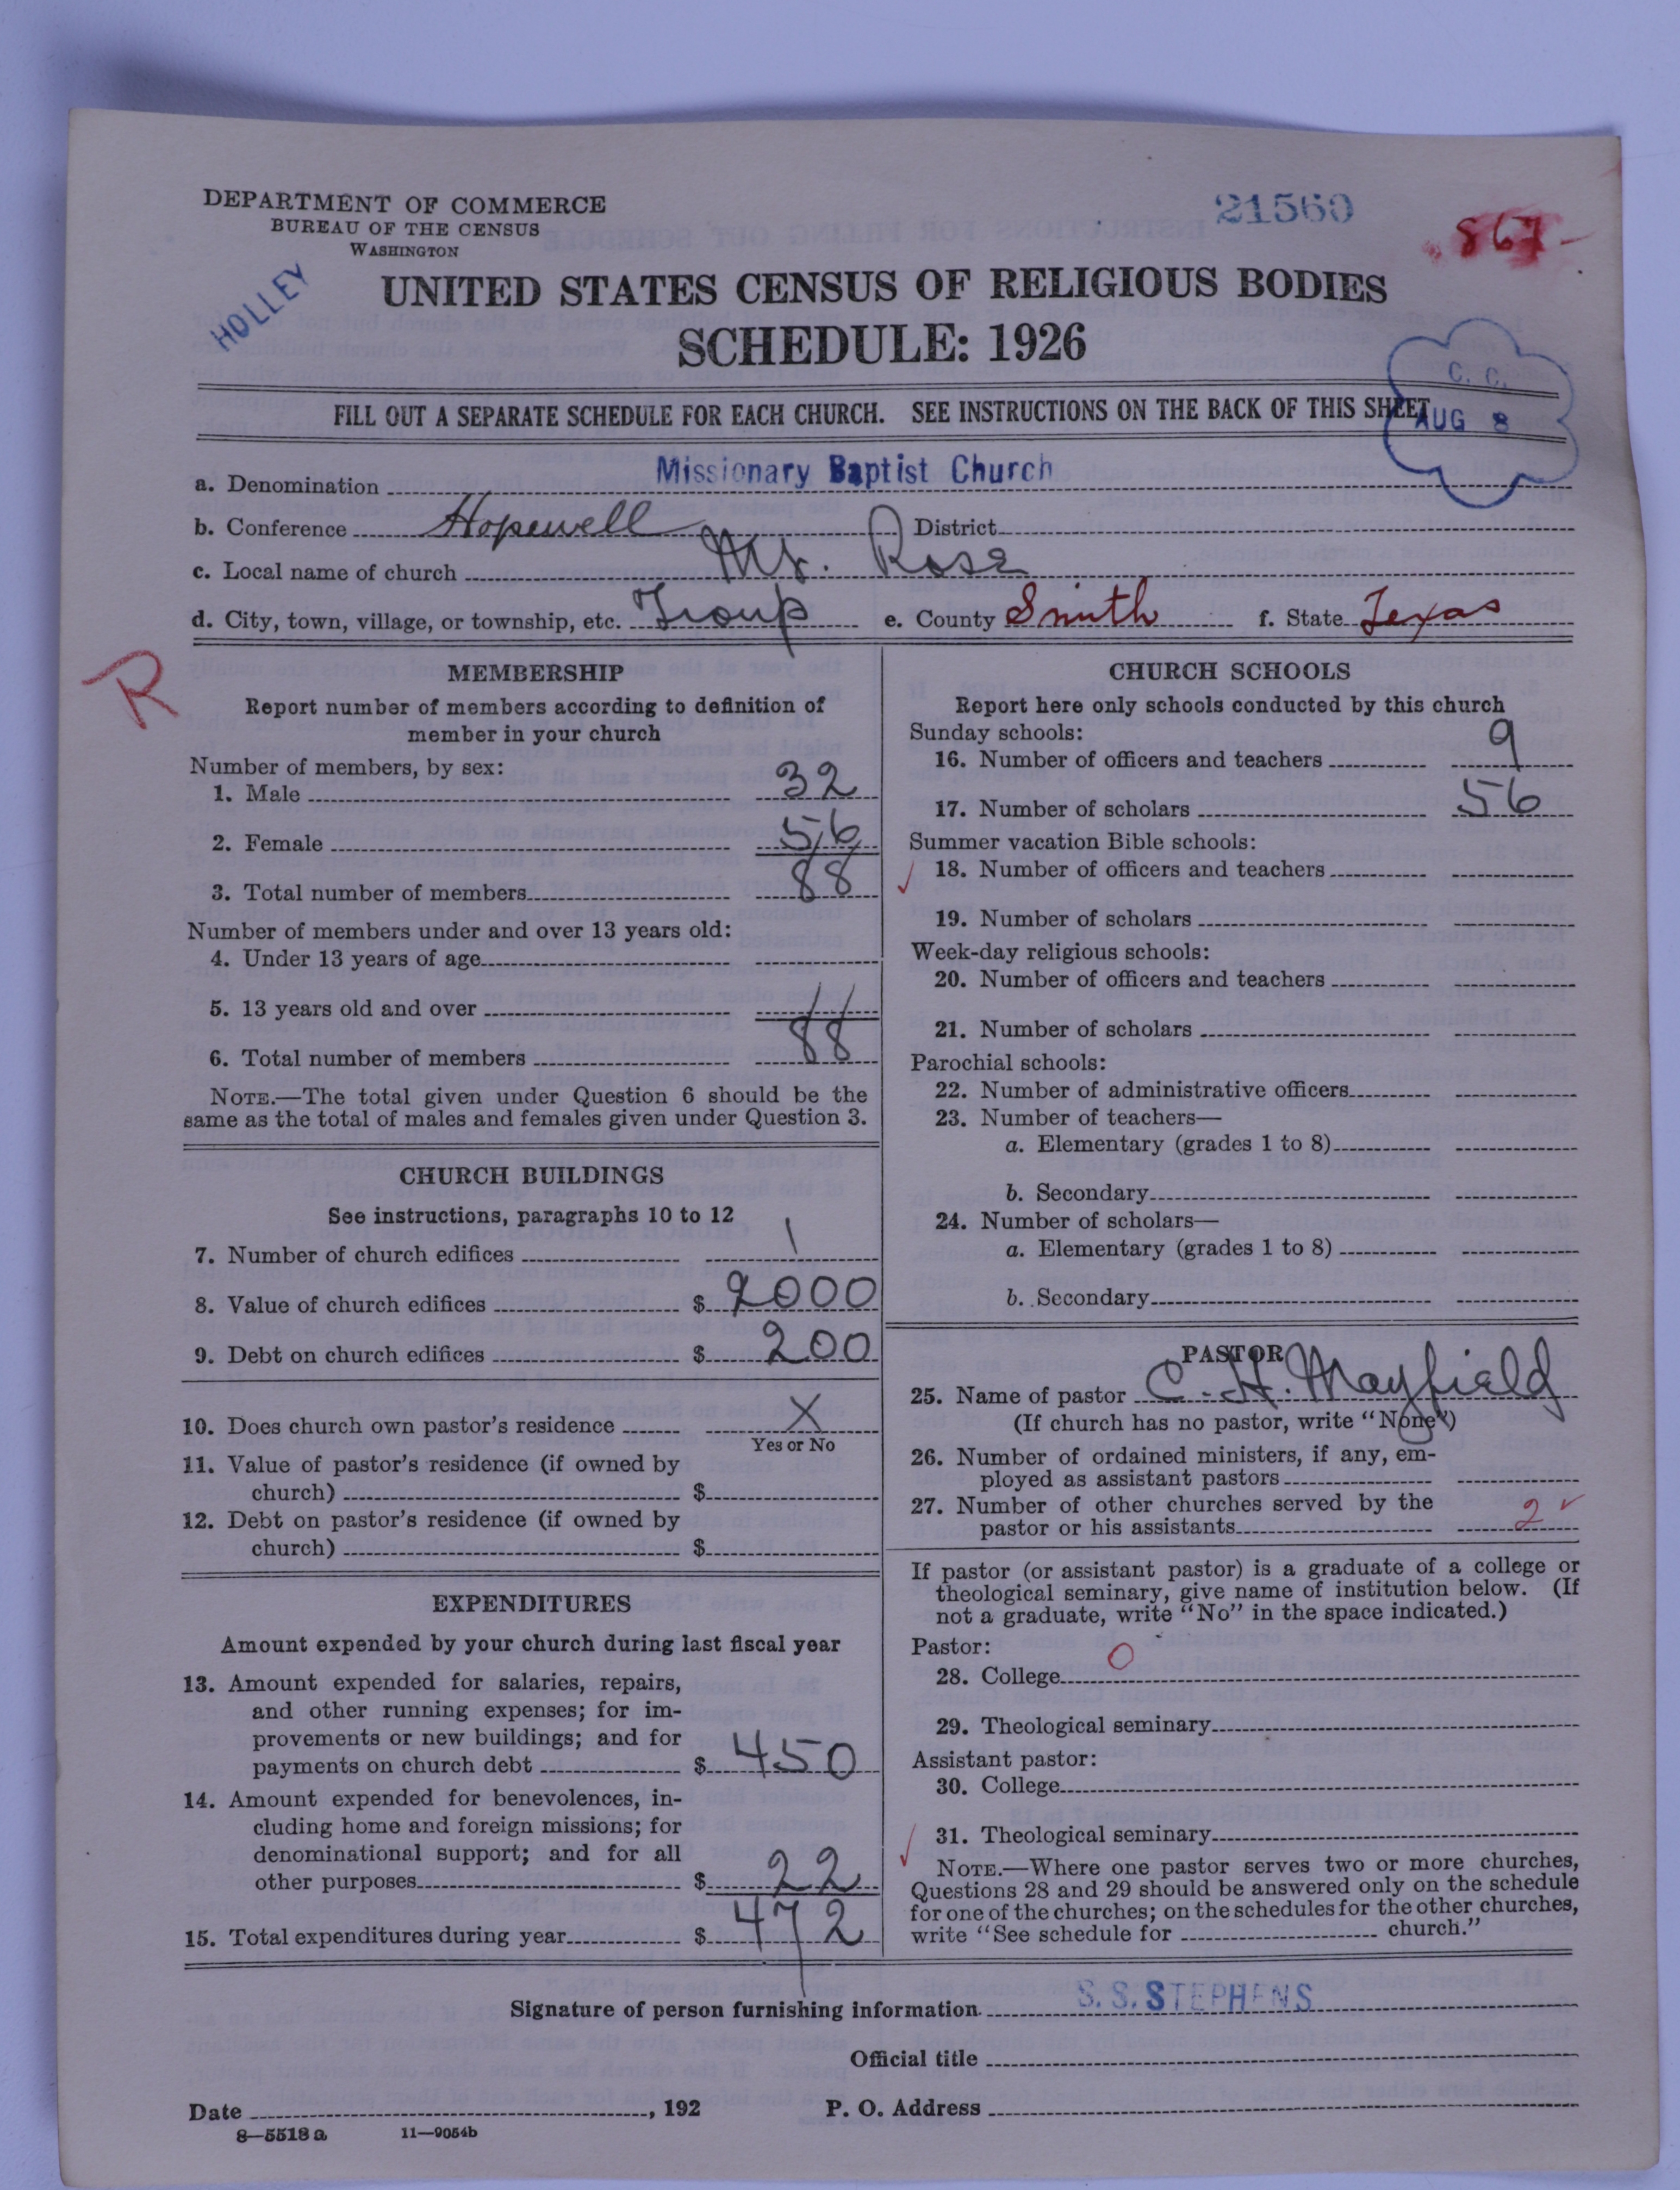 DEPARTMENT OF COMMERCE
BUREAU OF THE CENSUS
WASHINGTON
21560
867-
HOLLEY
UNITED STATES CENSUS OF RELIGIOUS BODIES
SCHEDULE: 1926
C. C.
AUG 8
FILL OUT A SEPARATE SCHEDULE FOR EACH CHURCH. SEE INSTRUCTIONS ON THE BACK OF THIS SHEET
a. Denomination Missionary Baptist Church
b. Conference Hopewell District
c. Local name of church Mt. Rose
d. City, town, village, or township, etc. Troup e. County Smith f. State Texas
R
MEMBERSHIP
Report number of members according to definition of
member in your church
Number of members, by sex:
1. Male 32
2. Female 56
3. Total number of members 88
Number of members under and over 13 years old:
4. Under 13 years of age
5. 13 years old and over 11
6. Total number of members 88
NOTE.—The total given under Question 6 should be the
same as the total of males and females given under Question 3.
CHURCH BUILDINGS
See instructions, paragraphs 10 to 12
7. Number of church edifices 1
8. Value of church edifices $ 2000
9. Debt on church edifices $ 200
10. Does church own pastor's residence X
Yes or No
11. Value of pastor's residence (if owned by
church) $
12. Debt on pastor's residence (if owned by
church) $
EXPENDITURES
Amount expended by your church during last fiscal year
13. Amount expended for salaries, repairs,
and other running expenses; for im-
provements or new buildings; and for
payments on church debt $ 450
14. Amount expended for benevolences, in-
cluding home and foreign missions; for
denominational support; and for all
other purposes $ 22
15. Total expenditures during year $ 472
CHURCH SCHOOLS
Report here only schools conducted by this church
Sunday schools:
16. Number of officers and teachers 9
17. Number of scholars 56
Summer vacation Bible schools:
18. Number of officers and teachers
19. Number of scholars
Week-day religious schools:
20. Number of officers and teachers
21. Number of scholars
Parochial schools:
22. Number of administrative officers
23. Number of teachers—
a. Elementary (grades 1 to 8)
b. Secondary
24. Number of scholars—
a. Elementary (grades 1 to 8)
b. Secondary
PASTOR
25. Name of pastor C. H. Mayfield
(If church has no pastor, write "None")
26. Number of ordained ministers, if any, em-
ployed as assistant pastors
27. Number of other churches served by the
pastor or his assistants 2 ✓
If pastor (or assistant pastor) is a graduate of a college or
theological seminary, give name of institution below. (If
not a graduate, write "No" in the space indicated.)
Pastor:
28. College 0
29. Theological seminary
Assistant pastor:
30. College
31. Theological seminary
NOTE.—Where one pastor serves two or more churches,
Questions 28 and 29 should be answered only on the schedule
for one of the churches; on the schedules for the other churches,
write "See schedule for church."
Signature of person furnishing information S. S. STEPHENS
Official title
Date , 192 P. O. Address
8—5518 a 11—9054b